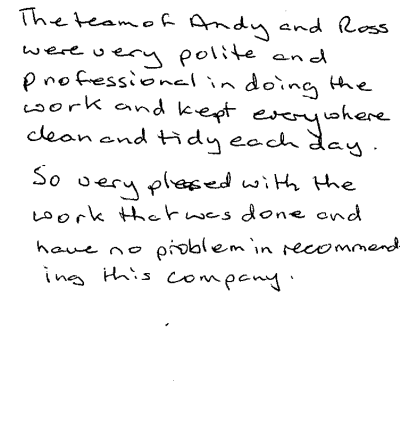 The team of Andy and Ross
were very polite and
professional in doing the
work and kept everywhere
clean and tidy each day.
So very plesed with the
work that was done and
have no problem in recommend
ing this company.